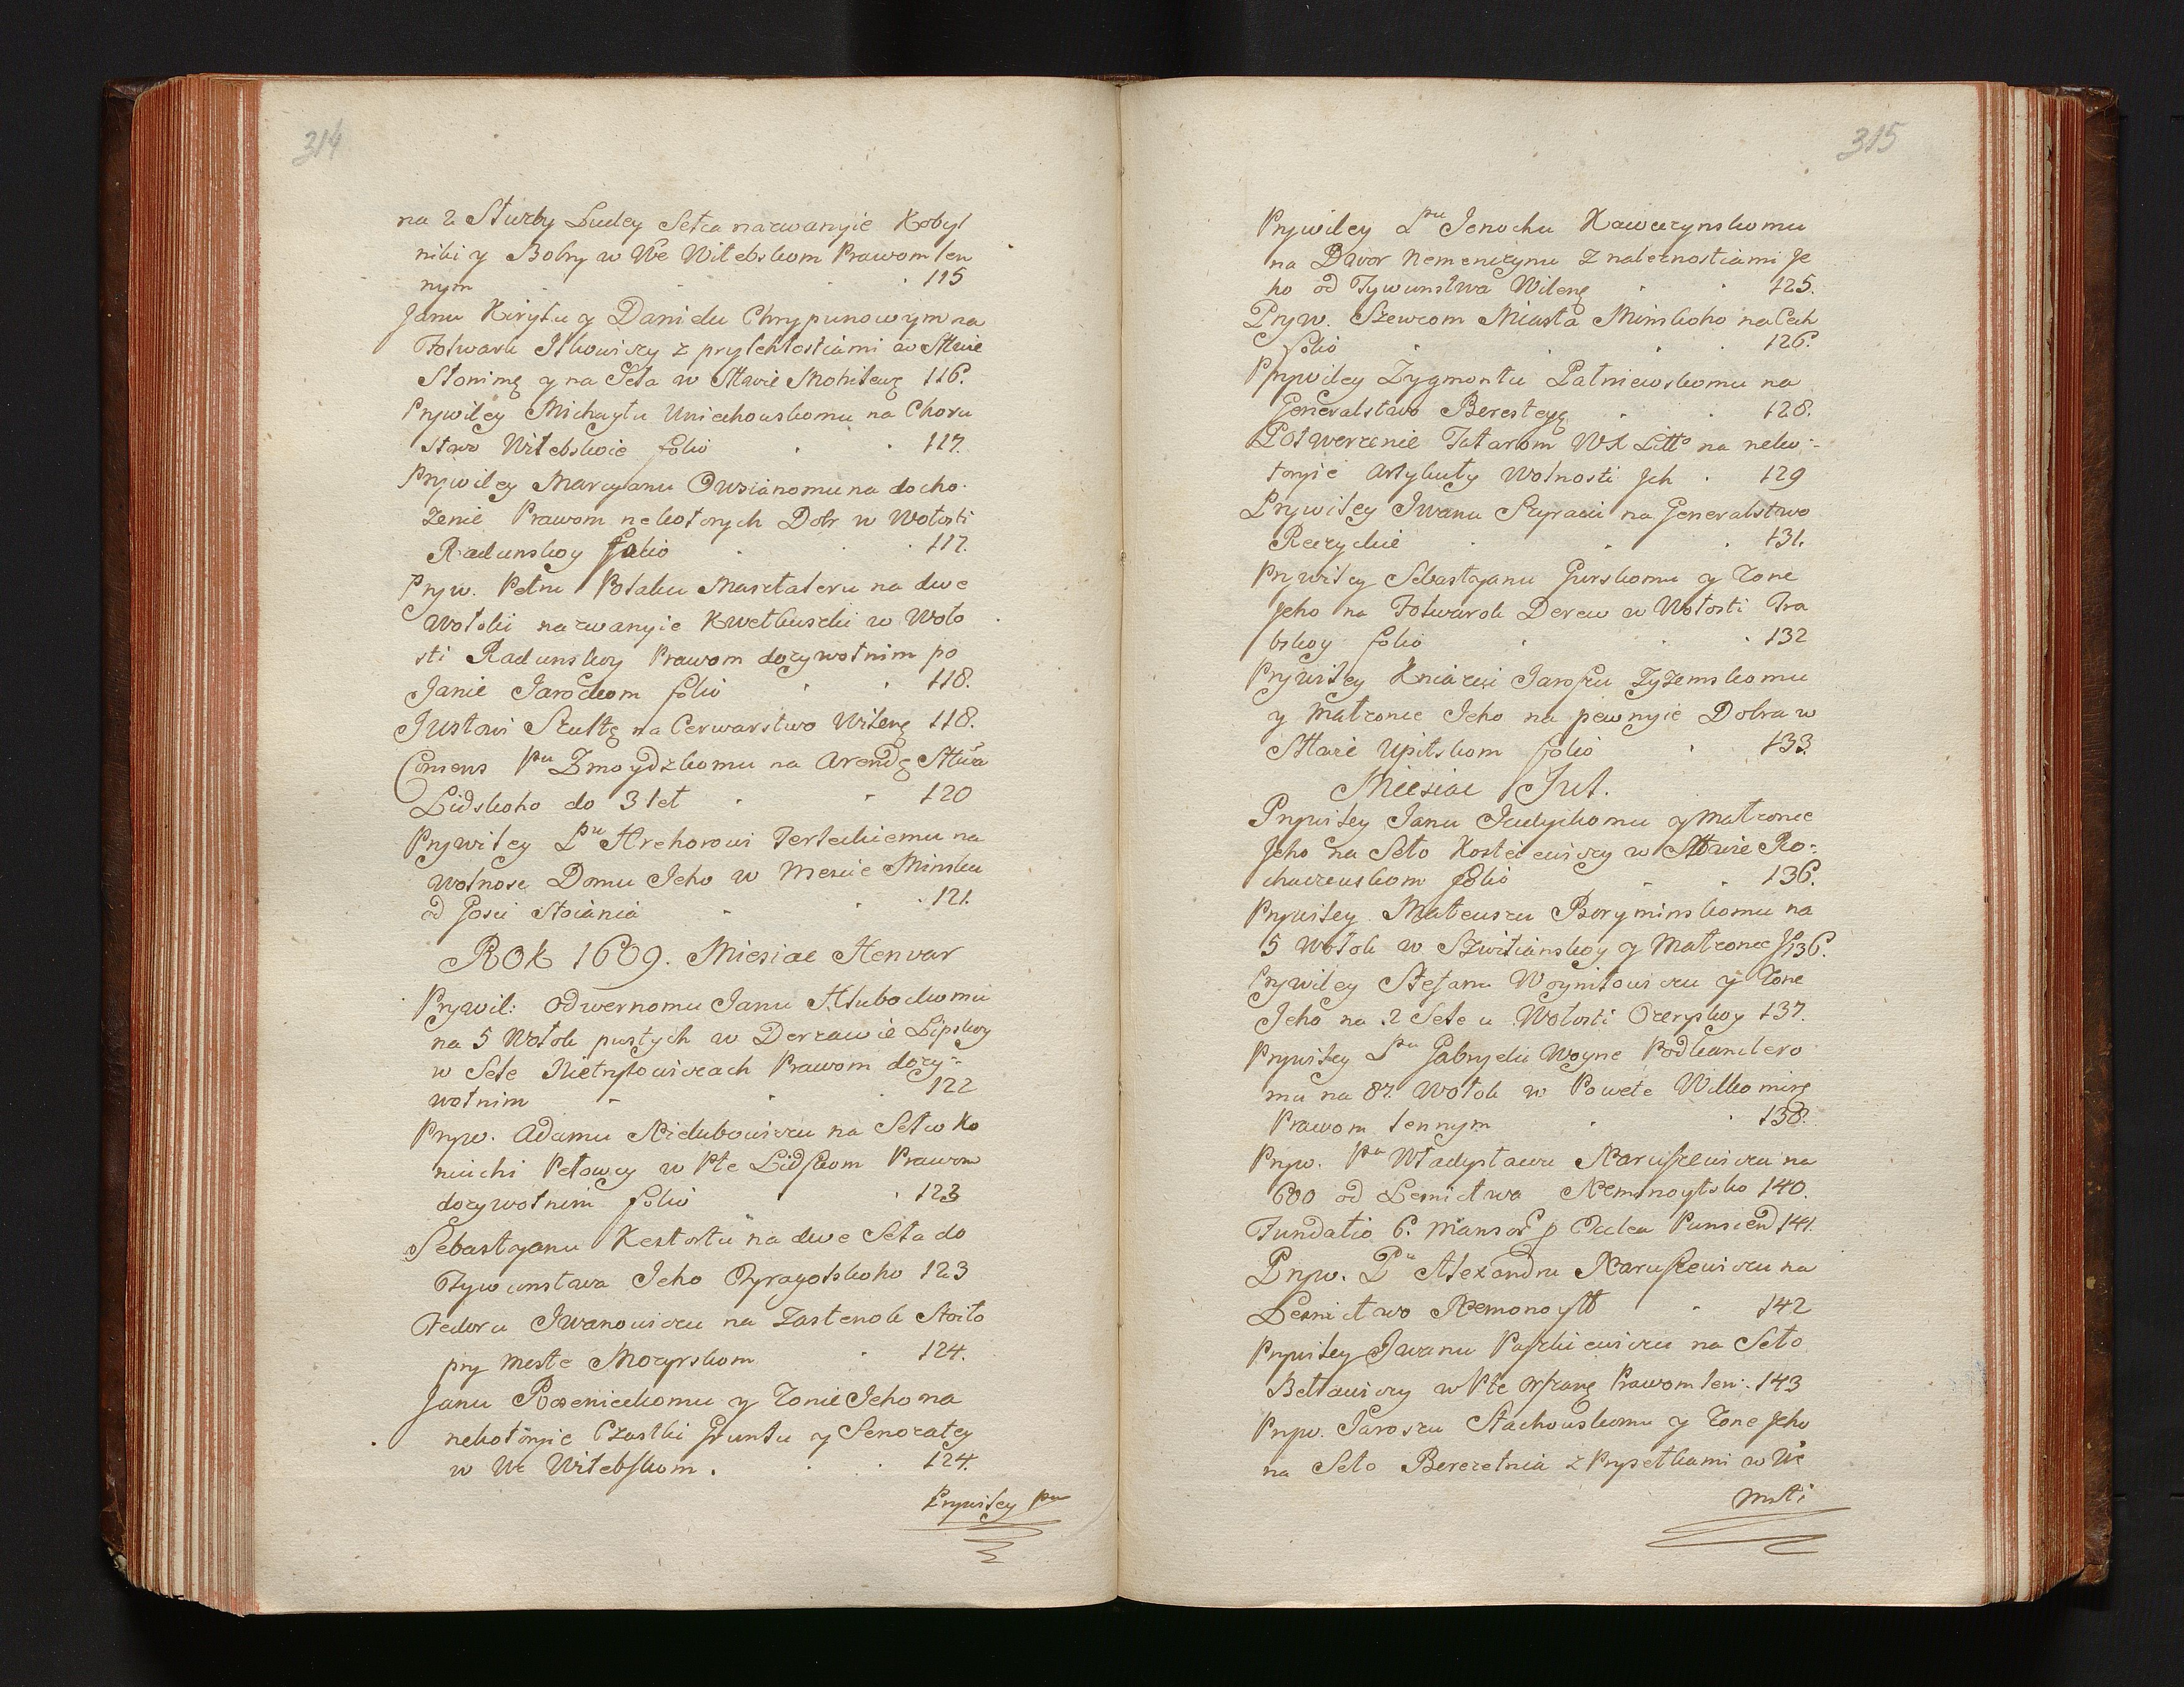 314
na 2 Służby Ludey Sełca nazwanyie Kobyl
niki y Bobry w We Witebskom Prawom len
nym 115
Janu Kiryłu y Danielu Chrypunowym na
Folwark Itkowiczy z prylehłostiami w Stwie
Słonimę y na Seła w Stwie Mohilewę 116.
Prywiley Michayłu Uniechowskomu na Choru
stwo Witebskoie folio 117.
Prywiley Marcyanu Owsianomu na docho
żenie Prawom nekotorych Dobr w Wołosti
Radunskoy folio 117.
Pryw. Petru Potaku Masztaleru na dwe
Wołoki nazwanyie Kwetkuszki w Woło
sti Radunskoy Prawom dożywotnim po
Janie Jarockom folio 118.
Justowi Szultę na Cerwarstwo Wilenę 118.
Consens Pu Zmoydzkomu na Arendę Stwa
Lidskoho do 3 let 120
Prywiley Pu Hrehorowi Terleckiemu na
Wolnosc Domu Jeho w Mescie Minsku
od Gosci Stoiania 121.
ROK 1609. Miesiac Henvar
Prywil: Odwernomu Janu Hłubockomu
na 5 Wołok pustych w Derzawie Lipskoy
w Sele Nietryłowiczach Prawom doży-
wotnim 122
Pryw. Adamu Nielubowiczu na Sełco Ko
niuchi Pełowcy w Pte Lidskom Prawom
dożywotnim folio 123
Sebastyanu Kestortu na dwe Seła do
Tywunstwa Jeho Oyragolskoho 123
Fedoru Iwanowiczu na Zastenok Stoiło
pry Meste Mozyrskom 124.
Janu Rosenieckomu y Zonie Jeho na
nekotoryie Cząstki Gruntu y Senozatey
w We Witebskom. 124.
Prywiley Pu
315
Prywiley Pu Jenochu Kaweczynskomu
na Dwor Nemenczynu z nalеżnostiami Je
ho od Tywunstwa Wilenę 125.
Pryw. Szewcom Miasta Minskoho na Cech
folio 126.
Prywiley Zygmontu Łatniewskomu na
Generalstwo Beresteyę 128.
Potwerzenie Tatarom WX Litto na neko-
toryie Artykuły Wolnosti Jch 129
Prywiley Iwanu Supraciu na Generalstwo
Reczyckie 131.
Prywiley Sebastyanu Gurskomu y Zone
Jeho na Folwarok Derew w Wołosti Tra
bskoy folio 132
Prywiley Kniaziu Jaroszu Zyzemskomu
y Małzonce Jeho na pewnyie Dobra w
Stwie Upitskom folio 133
Miesiac Jut.
Prywiley Janu Judyckomu y Małzonce
Jeho na Seło Kosteiewiczy w Stwie Ro-
haczewskom folio 136.
Prywiley Mateuszu Boryminskomu na
5 Wołok w Szwitianskoy y Małzonce J 136.
Prywiley Stefanu Woyniłowiczu y Zone
Jeho na 2 Sele u Wołosti Ozeryskoy 137.
Prywiley Pu Gabryelu Woyne Podkanclero
mu na 87. Wołok w Powete Wilkomirę
Prawom lennym 138.
Pryw. Pu Władysławu Naruszewiczu na
600 od Lesnictwa Nemonoytsko 140.
Fundatio 6. Mansor p Oulea Punsien 141.
Pryw. Pu Alexandru Naruszewiczu na
Lesnictwo Nemonoyt 142
Prywiley Iwanu Paszkiewiczu na Seło
Bełtawiczy w Pte Orszanę Prawom len: 143
Pryw. Jaroszu Stachowskomu y Zone Jeho
na Seło Berezetnia z Prysełkami w We
Msti